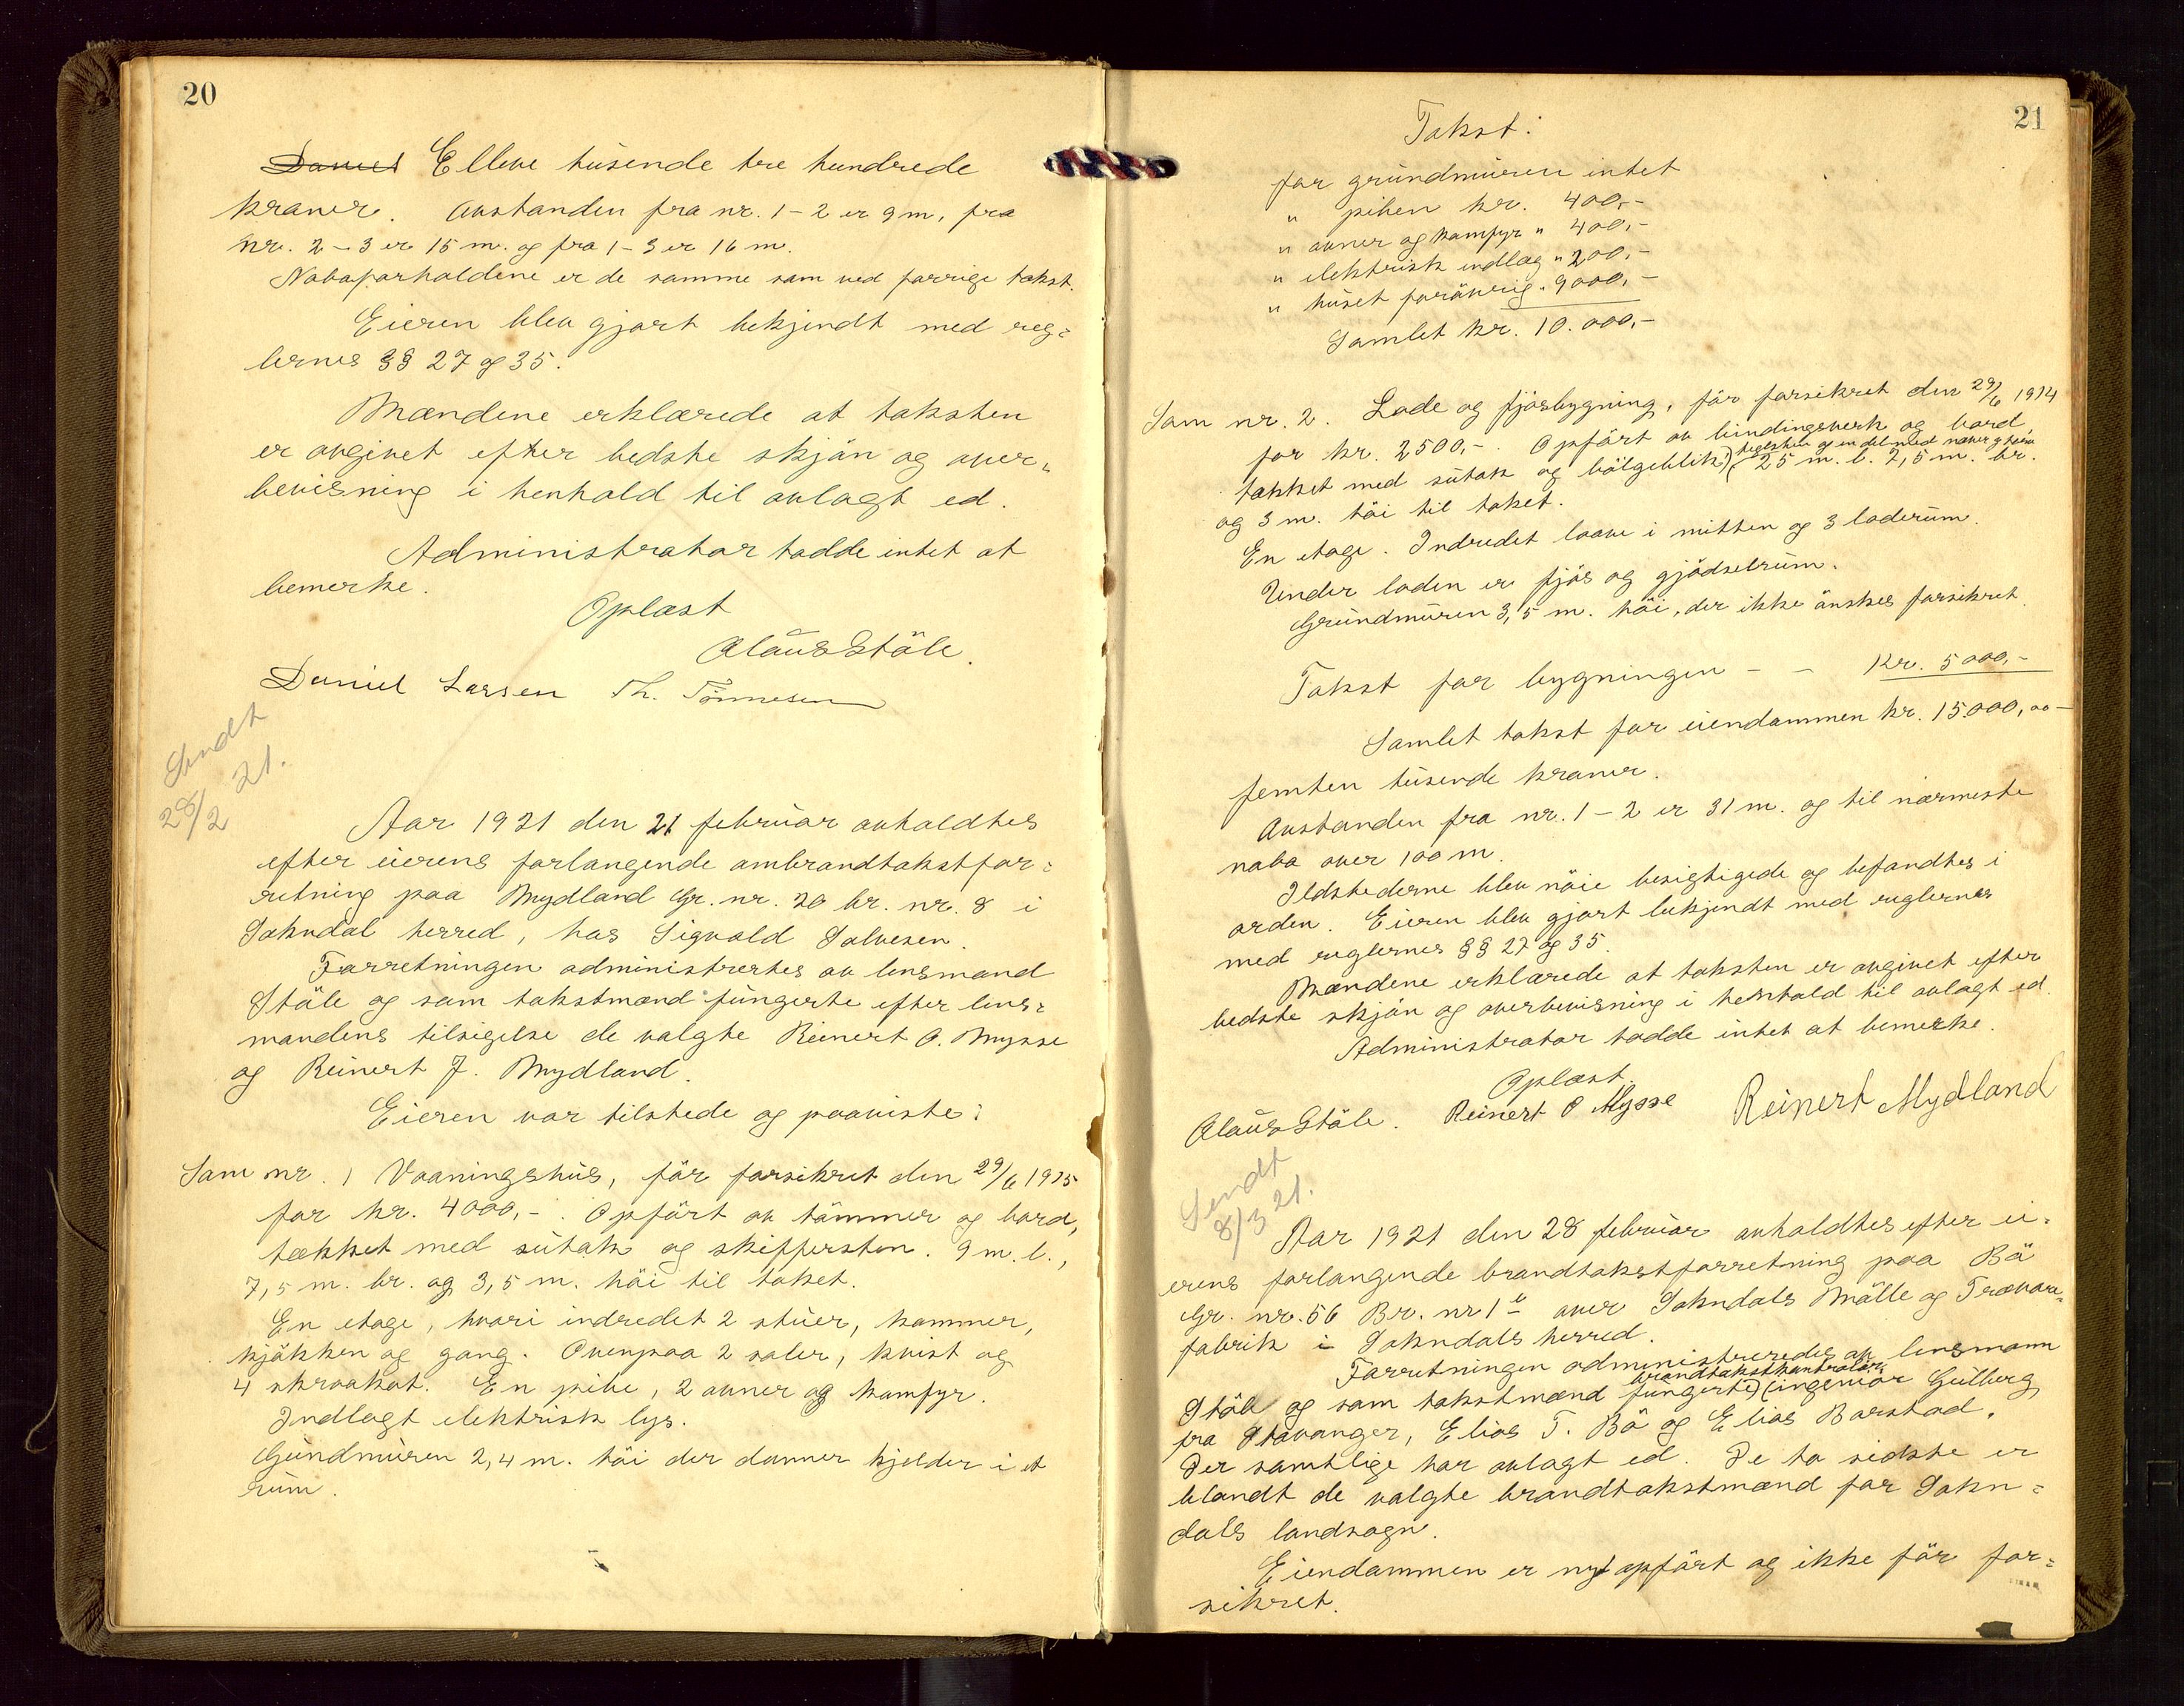 20
Daniel Elleve tusende tre hundrede
kroner. Avstanden fra nr. 1-2 er 9 m, fra
nr. 2-3 er 15 m. og fra 1-3 er 16 m.
Naboforholdene er de samme som ved forrige takst.
Eieren blev gjort bekjendt med reg=
lernes §§ 27 og 35.
Mændene erklærede at taksten
er avgivet efter bedste skjön og over=
bevisning i henhold til avlagt ed.
Administrator hadde intet at
bemerke.
Oplæst
Olaus Ståle.
Daniel Larsen Th. Tönnesen
Sendt
28/2 21.
Aar 1921 den 21 februar avholdtes
efter eierens forlangende ombrandtakstfor=
retning paa Mydland Gr. nr. 20 br. nr. 8 i
Sokndal herred, hos Sigvald Salvesen.
Forretningen administrertes av lensmand
Ståle og som takstmænd fungerte efter lens=
mandens tilsigelse de valgte Reinert O. Mysse
og Reinert J. Mydland.
Eieren var tilstede og paaviste:
Som nr. 1 Vaaningshus, før forsikret den 29/6 1915
for kr. 4000,-. Opfört av tömmer og bord,
tækket med sutak og skifersten. 9 m. l.,
7,5 m. br. og 3,5 m. höi til taket.
En etage, hvori indredet 2 stuer, kammer,
kjökken og gang. Ovenpaa 2 saler, kvist og
4 skraakot. En pibe, 2 ovner og komfyr.
Indlagt elektrisk lys.
Gundmuren 2,4 m. höi der danner kjelder i et
rum.
21
Takst:
for grundmuren intet
" piben kr. 400,-
" ovner og komfyr " 400,-
" elektrisk indlæg " 200,-
" huset forövrig " 9000,-
Samlet kr. 10.000,-
Som nr. 2. Lade og fjösbygning, för forsikret den 29/6 1914
for kr. 2500,-. Opfört av bindingsverk og bord,
tegelsten og en del med næver og torv
tækket med sutak og bölgeblik) (25 m. l. 7,5 m. br.
og 3 m. höi til taket.
En etage. Indredet laave i mitten og 3 laderum.
Under laden er fjös og gjödselrum.
Grundmuren 3,5 m. höi, der ikke önskes forsikret.
Takst for bygningen - - Kr. 5000,-
Samlet takst for eiendommen kr. 15.000,00-
femten tusende kroner.
Avstanden fra nr. 1-2 er 31 m. og til nærmeste
nabo over 100 m.
Ildstederne blev nöie besigtigede og befandtes i
orden. Eieren blev gjort bekjendt med reglernes
med reglernes §§ 27 og 35.
Mændene erklærede at taksten er avgivet efter
bedste skjön og overbevisning i henhold til avlagt ed.
Administrator hadde intet at bemerke.
Oplæst
Olaus Ståle. Reinert O Mysse Reinert Mydland
Sendt
8/3 21.
Aar 1921 den 28 februar avholdtes efter ei=
erens forlangende brandtakstforretning paa Bö
Gr. nr. 56 Br. nr 1 over Sokndals Mölle og Trævare=
fabrik i Sokndals herred.
Forretningen administreredes av lensmann
brandtakstkontrolör
Ståle og som takstmænd fungerte) (ingeniör Gulberg
fra Stavanger, Elias T. Bö og Elias Barstad.
Der samtlige har avlagt ed. De to sidste er
blandt de valgte brandtakstmænd for Sokn=
dals landsogn.
Eiendommen er nyt opfört og ikke för for=
sikret.